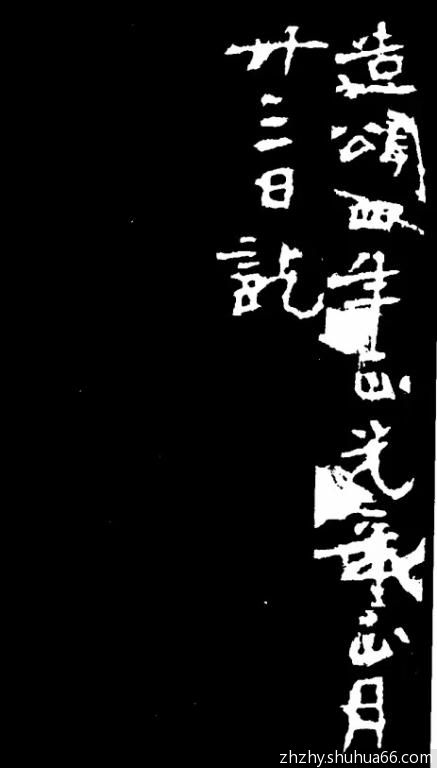 造頌四年正光㐧正月
廿三日訖
zhzhy.shuhua66.com